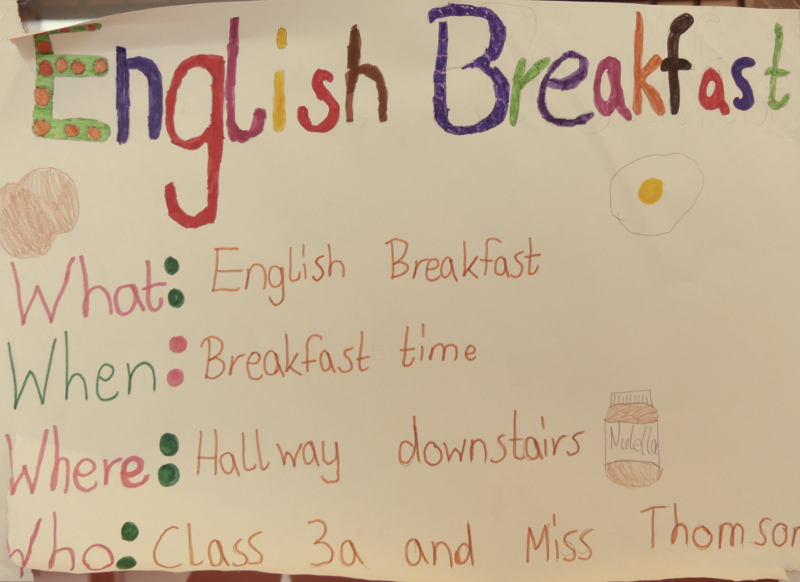 English Breakfast
What: English Breakfast
When: Breakfast time
Where: Hallway downstairs
Nutella
Who: Class 3a and Miss Thomson